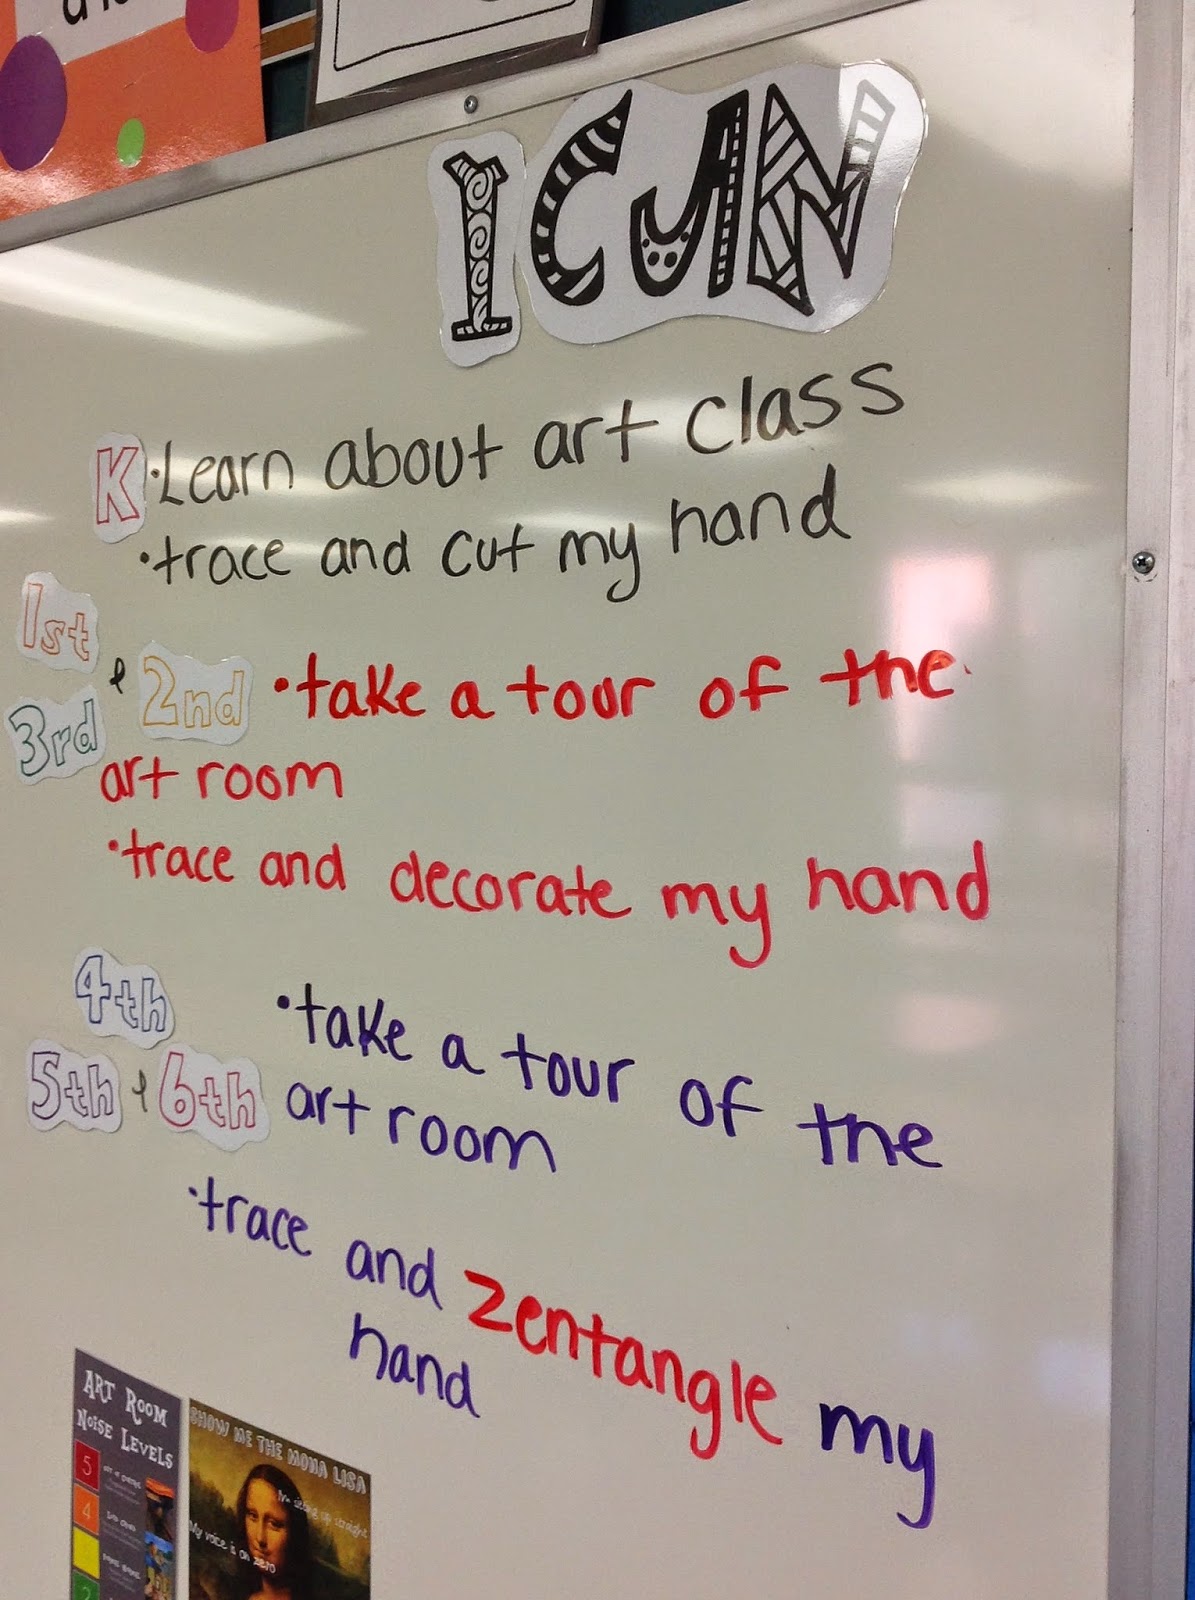 I CAN
K • Learn about art class
• trace and cut my hand
1st
& 2nd • take a tour of the
3rd
art room
• trace and decorate my hand
4th
• take a tour of the
5th & 6th art room
• trace and zentangle my
hand
ART ROOM
NOISE LEVELS
5
4
2
SHOW ME THE MONA LISA
I'm sitting up straight
My voice is on zero